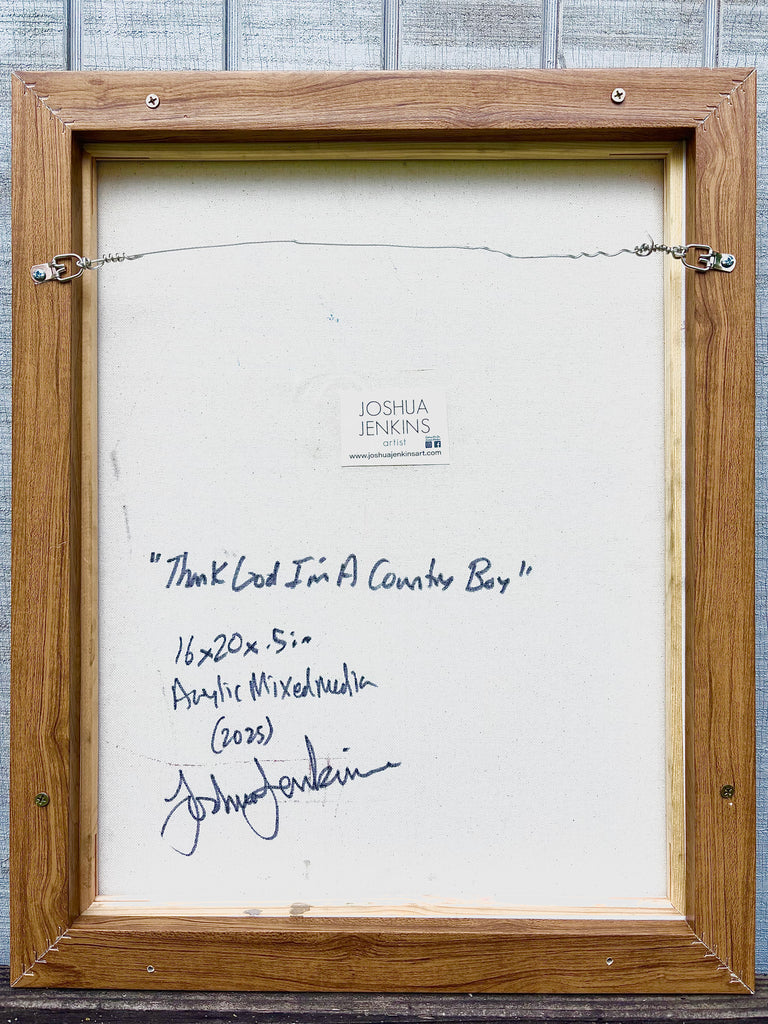 JOSHUA
JENKINS
artist
www.joshuajenkinsart.com
"Thank God I'm A Country Boy"
16x20x.5in
Acrylic Mixed Media
(2025)
Joshua Jenkins